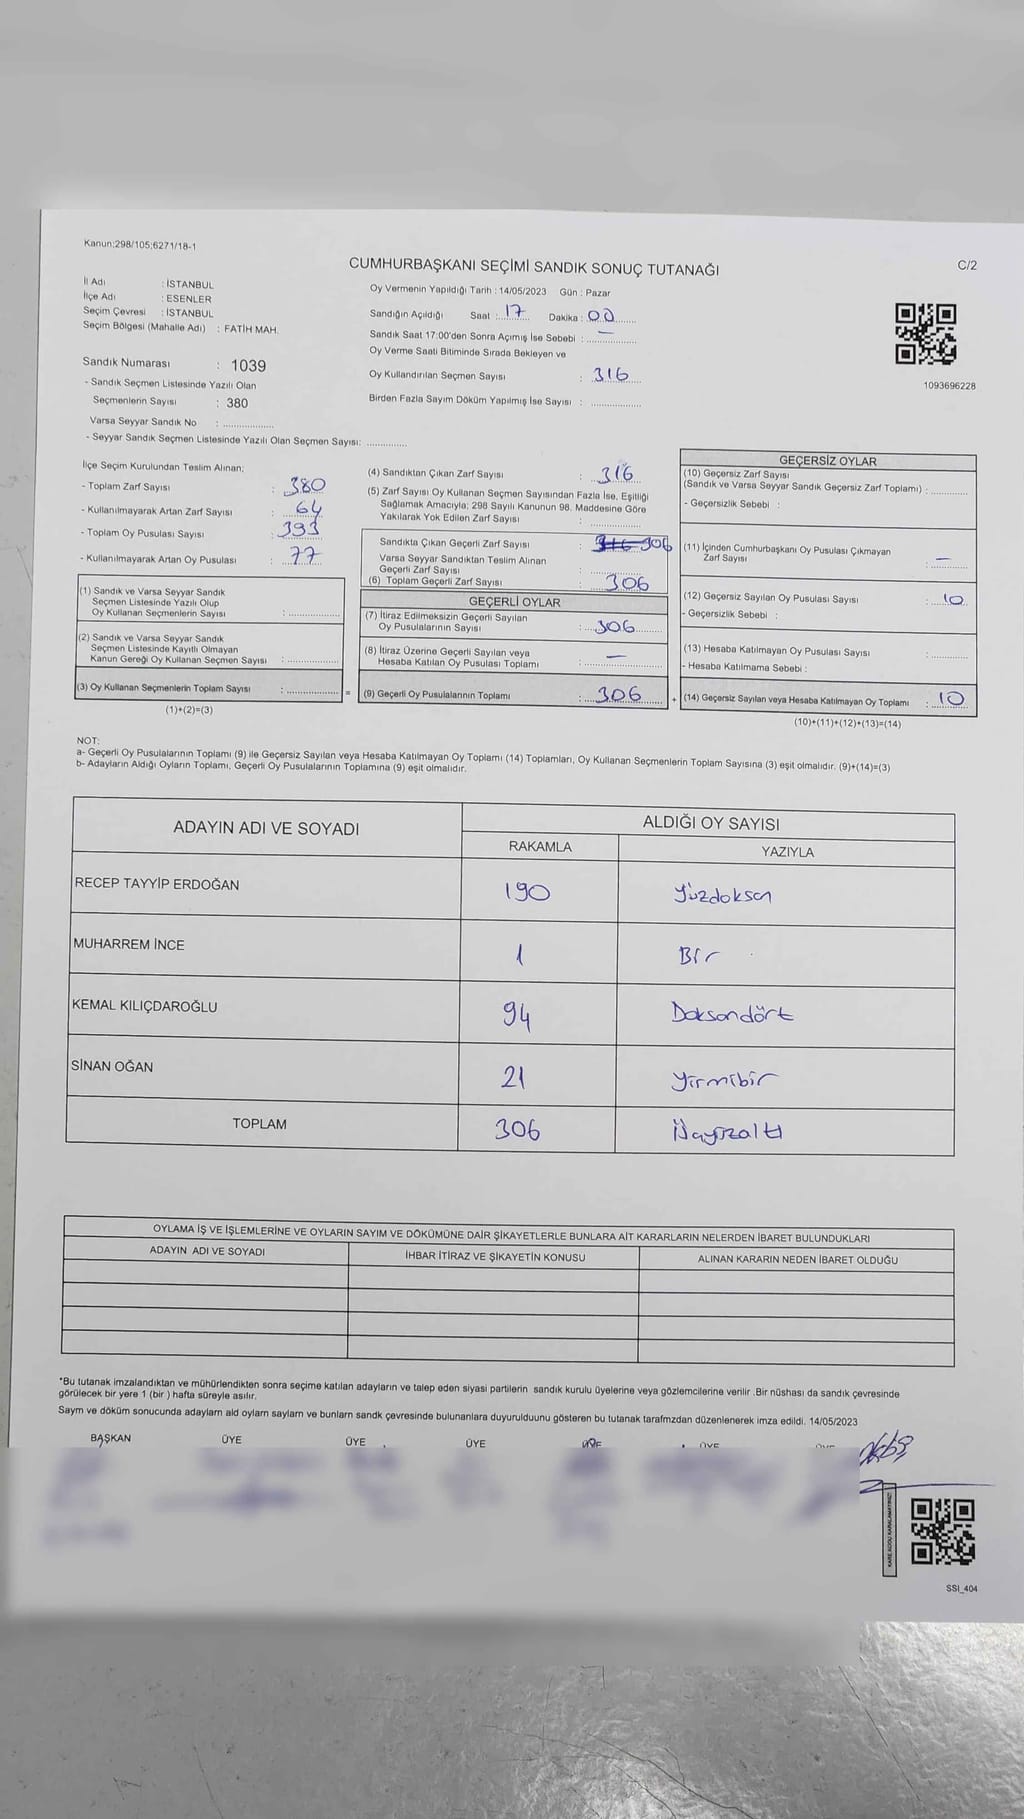 Kanun:298/105;6271/18-1
CUMHURBAŞKANI SEÇİMİ SANDIK SONUÇ TUTANAĞI
C/2
İl Adı : İSTANBUL
İlçe Adı : ESENLER
Seçim Çevresi : İSTANBUL
Seçim Bölgesi (Mahalle Adı) : FATİH MAH.
Sandık Numarası : 1039
- Sandık Seçmen Listesinde Yazılı Olan
Seçmenlerin Sayısı : 380
Varsa Seyyar Sandık No :
- Seyyar Sandık Seçmen Listesinde Yazılı Olan Seçmen Sayısı:
Oy Vermenin Yapıldığı Tarih : 14/05/2023 Gün : Pazar
Sandığın Açıldığı Saat : 17 Dakika : 00
Sandık Saat 17:00'den Sonra Açımış İse Sebebi : —
Oy Verme Saati Bitiminde Sırada Bekleyen ve
Oy Kullandırılan Seçmen Sayısı : 316
Birden Fazla Sayım Döküm Yapılmış İse Sayısı :
1093696228
İlçe Seçim Kurulundan Teslim Alınan;
- Toplam Zarf Sayısı : 380
- Kullanılmayarak Artan Zarf Sayısı : 64
- Toplam Oy Pusulası Sayısı : 393
- Kullanılmayarak Artan Oy Pusulası : 77
(1) Sandık ve Varsa Seyyar Sandık
Seçmen Listesinde Yazılı Olup
Oy Kullanan Seçmenlerin Sayısı :
(2) Sandık ve Varsa Seyyar Sandık
Seçmen Listesinde Kayıtlı Olmayan
Kanun Gereği Oy Kullanan Seçmen Sayısı :
(3) Oy Kullanan Seçmenlerin Toplam Sayısı : =
(1)+(2)=(3)
(4) Sandıktan Çıkan Zarf Sayısı : 316
(5) Zarf Sayısı Oy Kullanan Seçmen Sayısından Fazla İse, Eşitliği
Sağlamak Amacıyla; 298 Sayılı Kanunun 98. Maddesine Göre
Yakılarak Yok Edilen Zarf Sayısı :
Sandıkta Çıkan Geçerli Zarf Sayısı : 316 306
Varsa Seyyar Sandıktan Teslim Alınan
Geçerli Zarf Sayısı :
(6) Toplam Geçerli Zarf Sayısı : 306
GEÇERLİ OYLAR
(7) İtiraz Edilmeksizin Geçerli Sayılan
Oy Pusulalarının Sayısı : 306
(8) İtiraz Üzerine Geçerli Sayılan veya
Hesaba Katılan Oy Pusulası Toplamı : —
(9) Geçerli Oy Pusulalarının Toplamı : 306 +
GEÇERSİZ OYLAR
(10) Geçersiz Zarf Sayısı
(Sandık ve Varsa Seyyar Sandık Geçersiz Zarf Toplamı) :
- Geçersizlik Sebebi :
(11) İçinden Cumhurbaşkanı Oy Pusulası Çıkmayan
Zarf Sayısı : —
(12) Geçersiz Sayılan Oy Pusulası Sayısı : 10
- Geçersizlik Sebebi :
(13) Hesaba Katılmayan Oy Pusulası Sayısı :
- Hesaba Katılmama Sebebi :
(14) Geçersiz Sayılan veya Hesaba Katılmayan Oy Toplamı : 10
(10)+(11)+(12)+(13)=(14)
NOT:
a- Geçerli Oy Pusulalarının Toplamı (9) ile Geçersiz Sayılan veya Hesaba Katılmayan Oy Toplamı (14) Toplamları, Oy Kullanan Seçmenlerin Toplam Sayısına (3) eşit olmalıdır. (9)+(14)=(3)
b- Adayların Aldığı Oyların Toplamı, Geçerli Oy Pusulalarının Toplamına (9) eşit olmalıdır.
ADAYIN ADI VE SOYADI
ALDIĞI OY SAYISI
RAKAMLA YAZIYLA
RECEP TAYYİP ERDOĞAN 190 Yüzdoksan
MUHARREM İNCE 1 Bir
KEMAL KILIÇDAROĞLU 94 Doksandört
SİNAN OĞAN 21 Yirmibir
TOPLAM 306
OYLAMA İŞ VE İŞLEMLERİNE VE OYLARIN SAYIM VE DÖKÜMÜNE DAİR ŞİKAYETLERLE BUNLARA AİT KARARLARIN NELERDEN İBARET BULUNDUKLARI
ADAYIN ADI VE SOYADI İHBAR İTİRAZ VE ŞİKAYETİN KONUSU ALINAN KARARIN NEDEN İBARET OLDUĞU
*Bu tutanak imzalandıktan ve mühürlendikten sonra seçime katılan adayların ve talep eden siyasi partilerin sandık kurulu üyelerine veya gözlemcilerine verilir .Bir nüshası da sandık çevresinde
görülecek bir yere 1 (bir ) hafta süreyle asılır.
Saym ve döküm sonucunda adaylarn ald oylarn saylarn ve bunlarn sandk çevresinde bulunanlara duyurulduunu gösteren bu tutanak tarafmzdan düzenlenerek imza edildi. 14/05/2023
BAŞKAN ÜYE ÜYE ÜYE ÜYE ÜYE
SSI_404